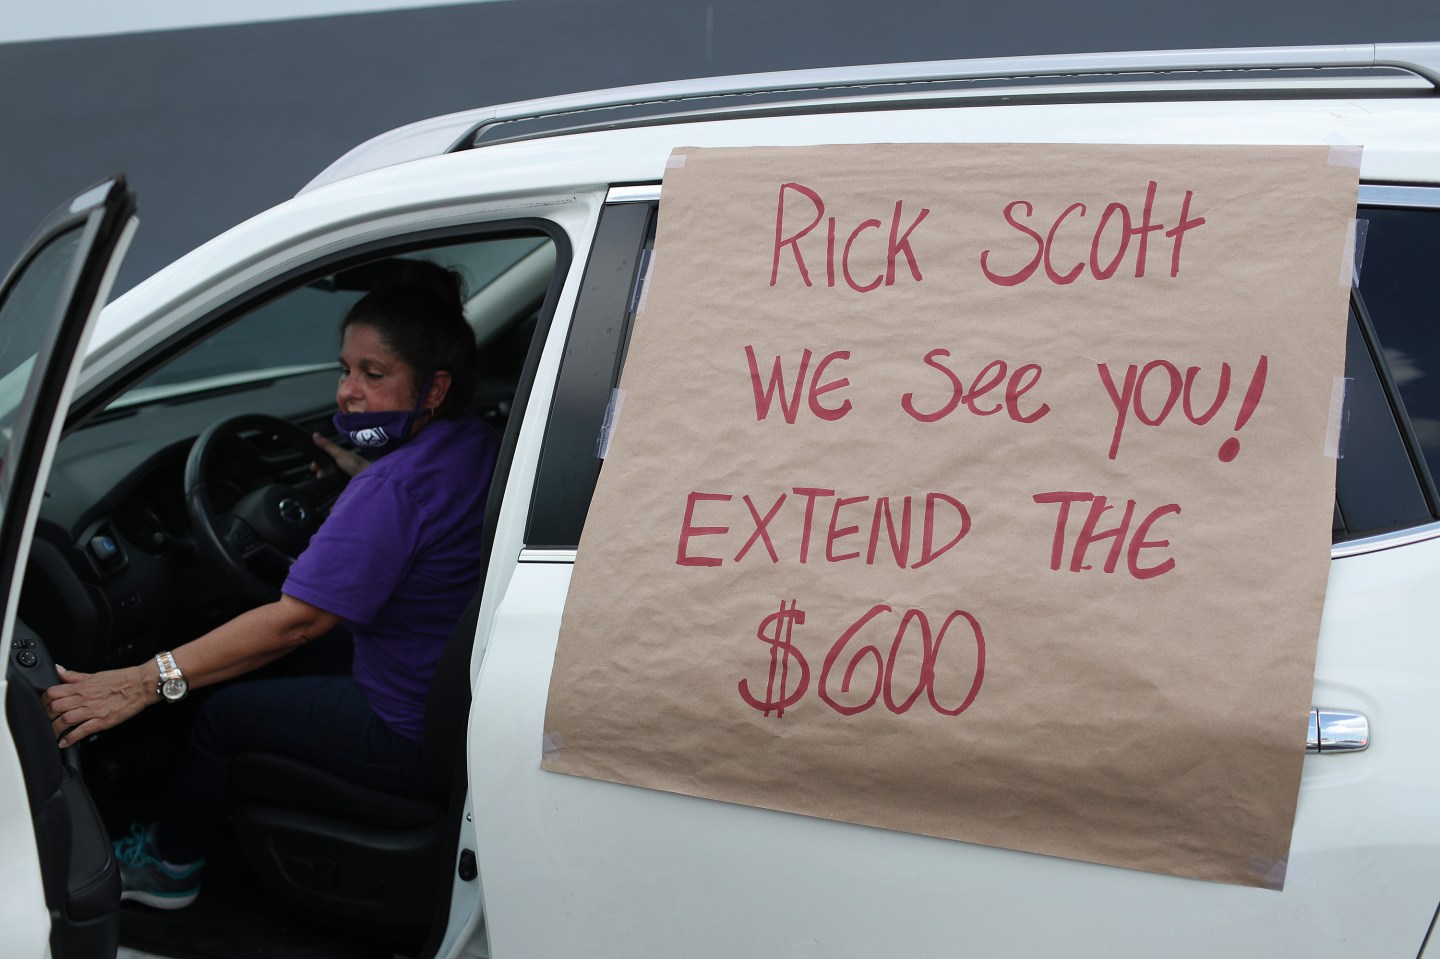 RICK SCOtt
WE See YOU!
EXTEND THE
$600